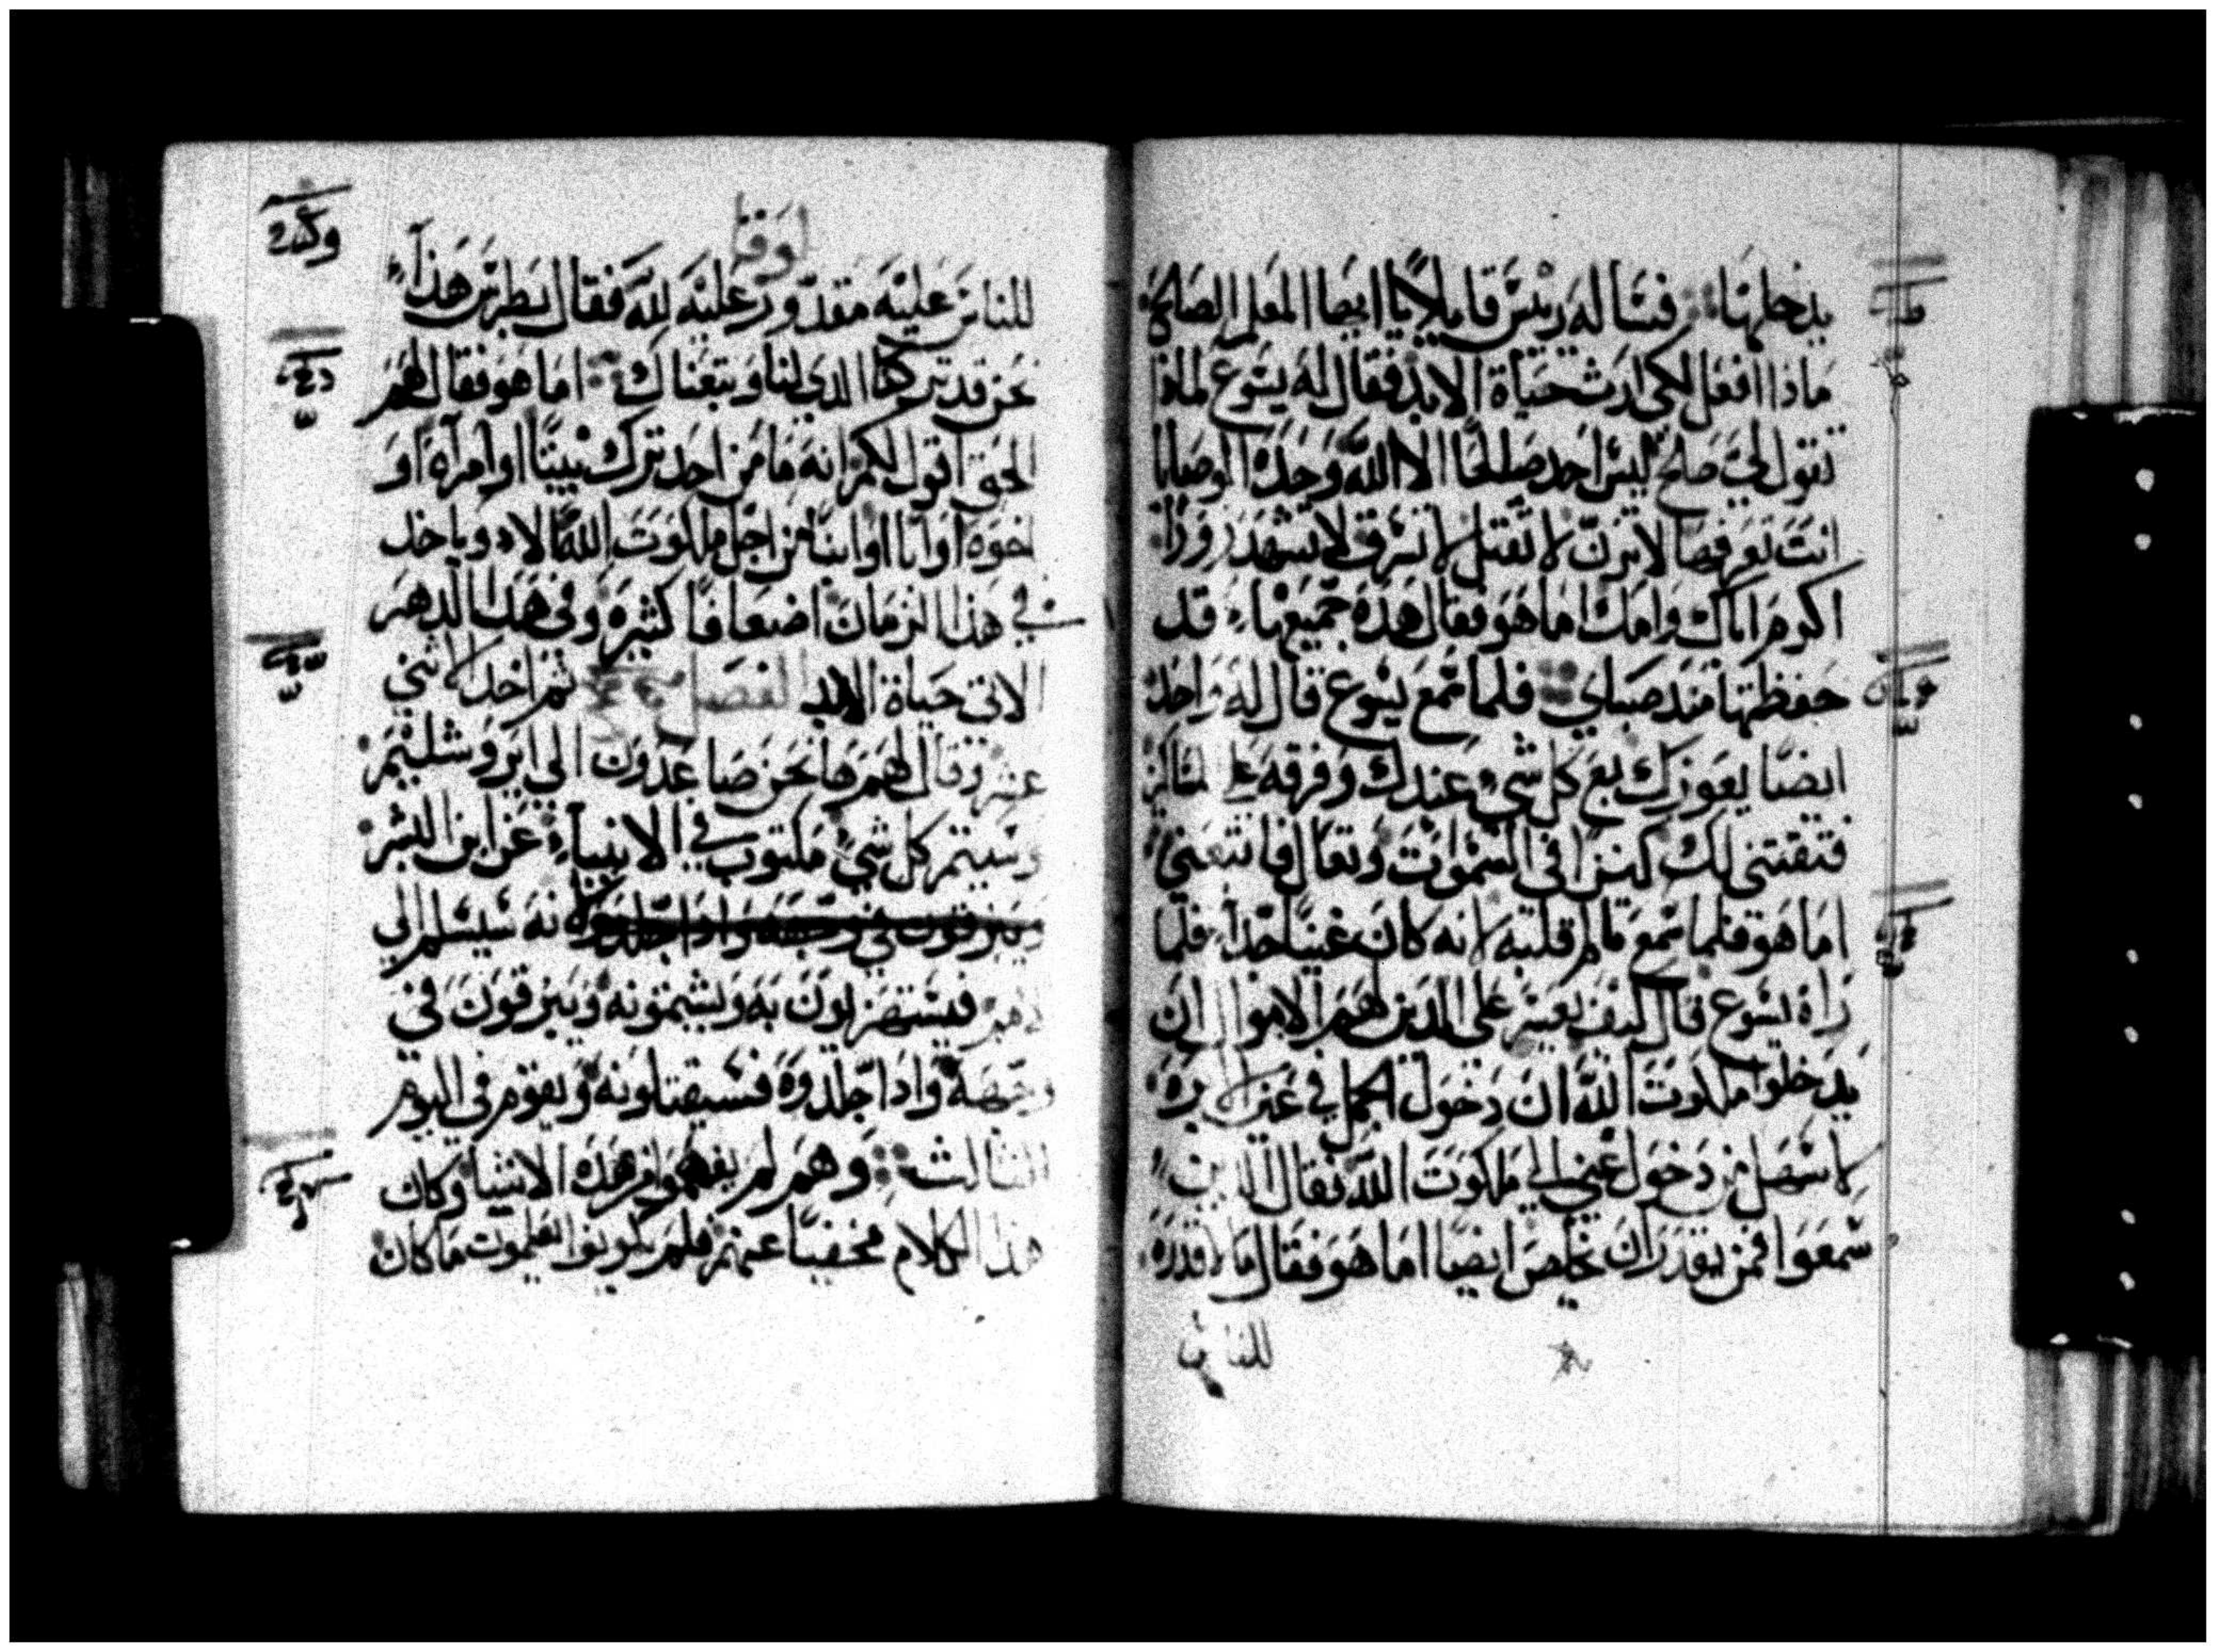 يدخلها فساله ريس قايلا يا ايها المعلم الصالح
ماذا افعل لكي ارث حياة الابد فقال له يسوع لماذا
تقول لي صالح ليس احد صالحا الا الله وحده الوصايا
انت تعرفها لا تزن لا تقتل لا تسرق لا تشهد زورا
اكرم اباك وامك اما هو فقال هذه جميعها قد
حفظتها منذ صباي فلما سمع يسوع قال له واحد
ايضا يعوزك بع كل شي عندك وفرقه علي
فتقتني لك كنزا في السموات وتعال فاتبعني
اما هو فلما سمع تالم قلبه لانه كان غنيا جدا فلما
راه يسوع قال كيف يعسر علي الذين لهم الاموال ان
يدخلوا ملكوت الله ان دخول الجمل في عين الابره
لاسهل من دخول غني الي ملكوت الله فقال الذين
سمعوا فمن يقدر ان يخلص ايضا اما هو فقال ما قدره
للناس
لوقا
للناس عليه مقدور عليه لله فقال بطرس هذا
نحن قد تركنا الذي لنا وتبعناك اما هو فقال لهم
الحق اقول لكم انه ما من احد ترك بيتا او امراه او
اخوه او ابا او ابنا من اجل ملكوت الله الا وياخد
في هذا الزمان اضعافا كثيره وفي هذا الدهر
الاتي حياة الابد الفصل ثم اخد الاثني
عشر وقال لهم ها نحن صاعدون الي ايروشليم
وسيتم كل شي مكتوب في الانبياء عن ابن البشر
ويبزقون في وجهه واذا جلدوه لانه سيسلم الي
فيستهزيون به ويشتمونه ويبزقون في
وجهه واذا جلدوه فسيقتلونه ويقوم في اليوم
الثالث وهم لم يفهموا من هذه الاشيا وكان
هذا الكلام مخفيا عنهم فلم يكونوا يعلموت ما كان